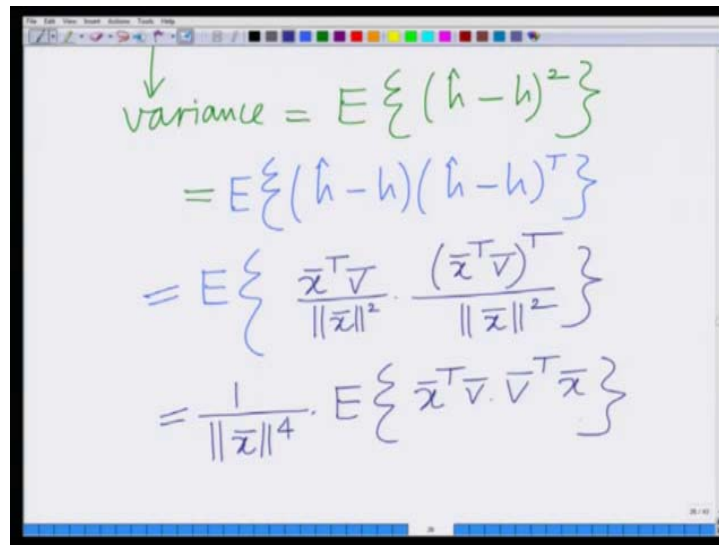 File Edit View Insert Actions Tools Help
variance = E{(ĥ − h)²}
= E{(ĥ − h)(ĥ − h)ᵀ}
= E{ x̄ᵀv̄ / ||x̄||² · (x̄ᵀv̄)ᵀ / ||x̄||² }
= 1 / ||x̄||⁴ · E{ x̄ᵀv̄ . v̄ᵀx̄ }